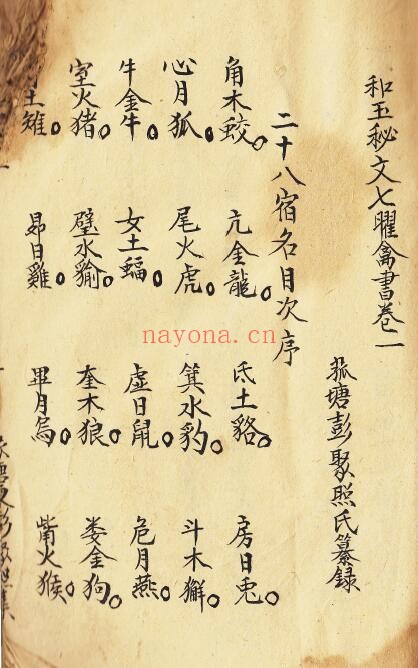 和玉秘文七曜禽書卷一
菰塘彭聚照氏纂録
二十八宿名目次序
角木蛟。亢金龍。氐土貉。房日兎。
心月狐。尾火虎。箕水豹。斗木獬。
牛金牛。女土蝠。虛日鼠。危月燕。
室火猪。壁水㺄。奎木狼。娄金狗。
土雉。昴日雞。畢月烏。觜火猴。
nayona.cn